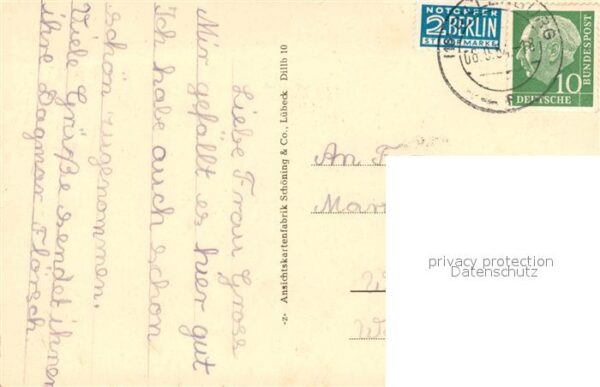 Liebe Frau Grose
Mir gefällt es hier gut
Ich habe auch schon
schön zugenommen.
Viele Grüße sendet ihnen
ihre Dagmar
-z- Ansichtskartenfabrik Schöning & Co., Lübeck Dillb 10
NOTOPFER
2 BERLIN
STEUERMARKE
10
DEUTSCHE
BUNDESPOST
An
privacy protection
Datenschutz